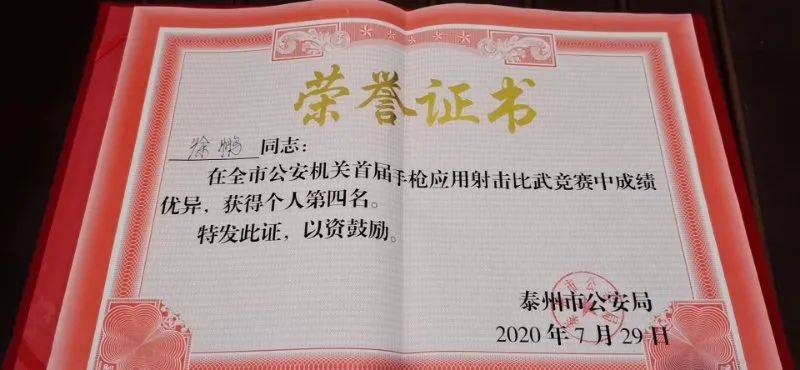 荣誉证书
徐鹏 同志：
在全市公安机关首届手枪应用射击比武竞赛中成绩
优异，获得个人第四名。
特发此证，以资鼓励。
泰州市公安局
2020 年 7 月 29 日